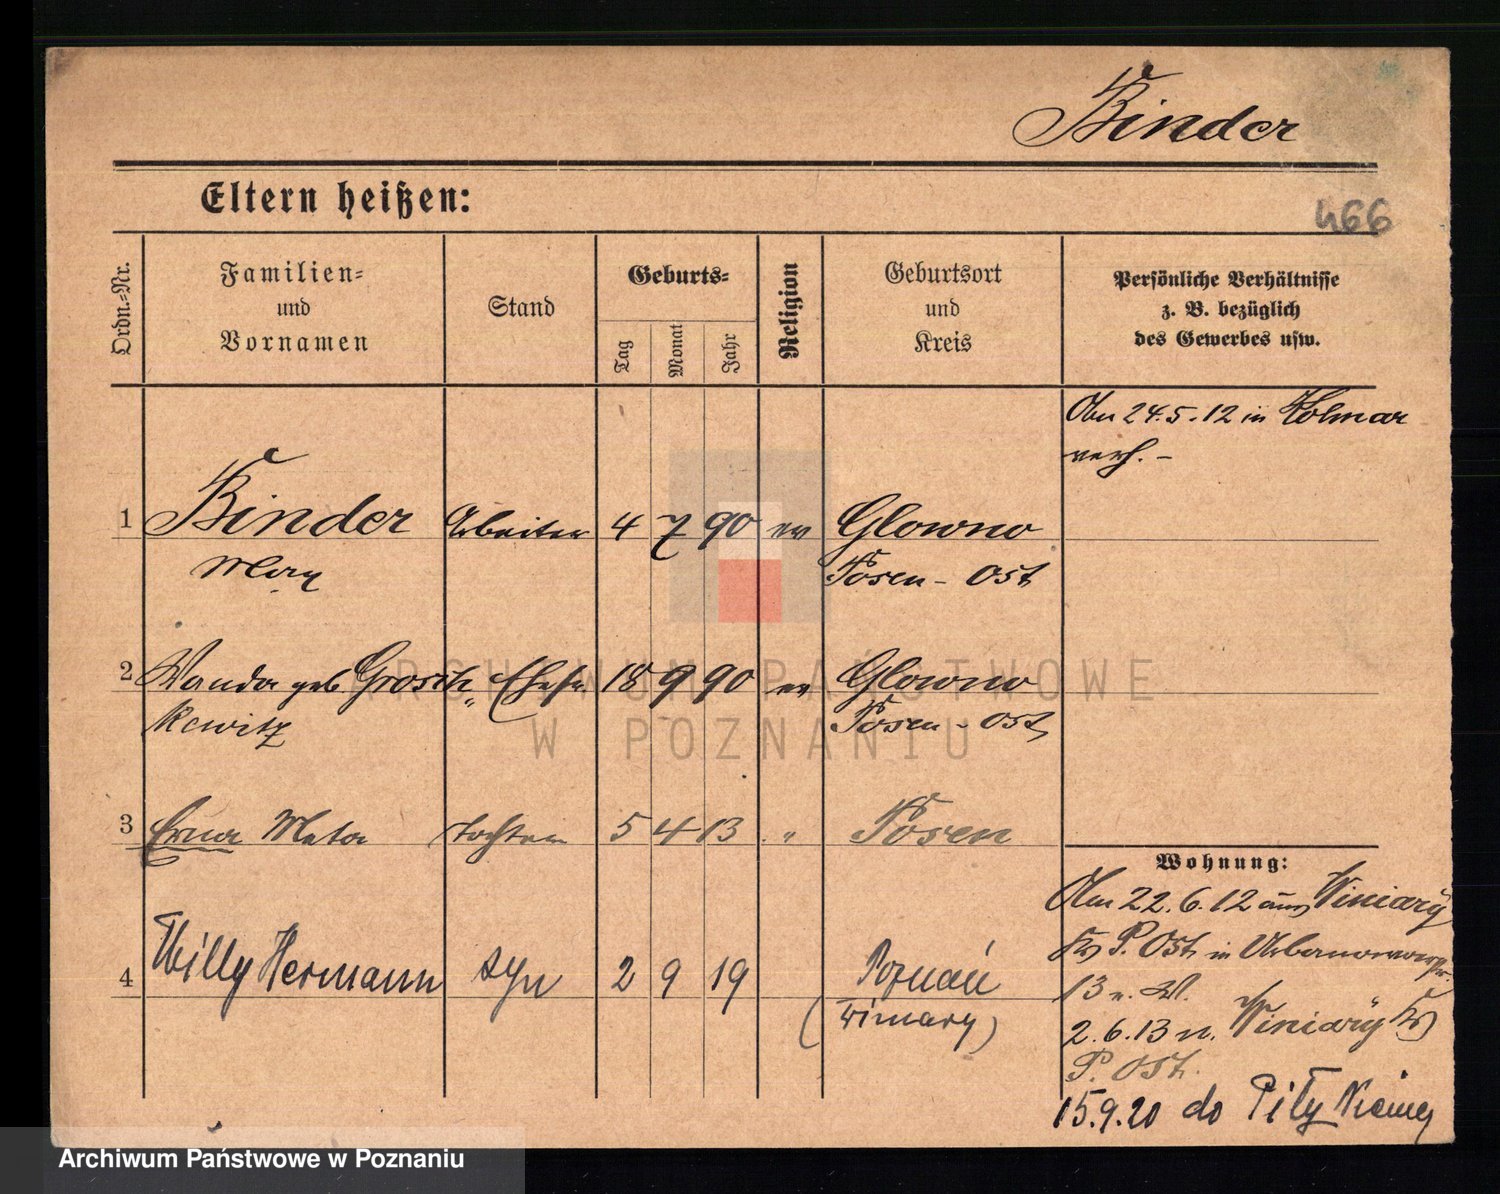 Binder
Eltern heißen:
466
Ordn.=Nr.
Familien=
und
Vornamen
Stand
Geburts=
Tag
Monat
Jahr
Religion
Geburtsort
und
Kreis
Persönliche Verhältnisse
z. B. bezüglich
des Gewerbes usw.
Am 24.5.12 in Kolmar
verh. –
1 Binder Arbeiter 4 7 90 ev Glowno
Max Posen - Ost
2 Wanda geb Grosch Ehefr. 18 9 90 ev Glowno
kewitz Posen - Ost
3 Erna Meta Tochter 5 4 13 " Posen
4 Willy Hermann syn 2 9 19 Poznań
(Winiary)
Wohnung:
Am 22.6.12 aus Winiary
Kr P. Ost in
13 n. W.
2.6.13 n. Winiary Kr
P. Ost.
15.9.20 do Piły Niemcy
ARCHIWUM PAŃSTWOWE
W POZNANIU
Archiwum Państwowe w Poznaniu